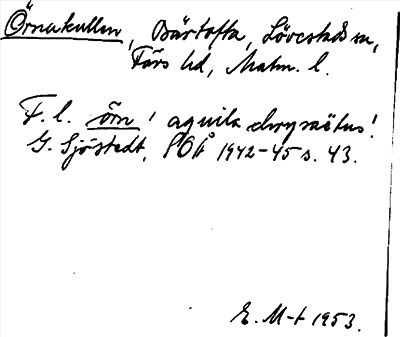 Örnakullen, Bärtofta, Lövestads sn,
Färs hd, Malm. l.
F. l. örn 'aquila chrysaëtus'.
G. Sjöstedt, SOÅ 1942-45 s. 43.
E. M-t 1953.